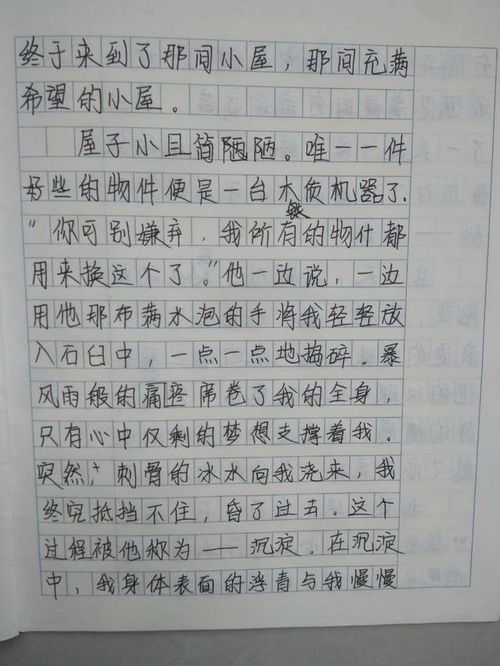 终于来到了那间小屋，那间充满
希望的小屋。
屋子小且简陋陋。唯一一件
好些的物件便是一台木质机器了.
“你可别嫌弃，我所有的物什都
用来换这个了。”他一边说，一边
用他那布满水泡的手将我轻轻放
入石臼中，一点一点地捣碎。暴
风雨般的痛席卷了我的全身，
只有心中仅剩的梦想支撑着我.
突然，刺骨的冰水向我浇来，我
终究抵挡不住，昏了过去。这个
过程被他称为——沉淀．在沉淀
中，我身体表面的浮青与我慢慢